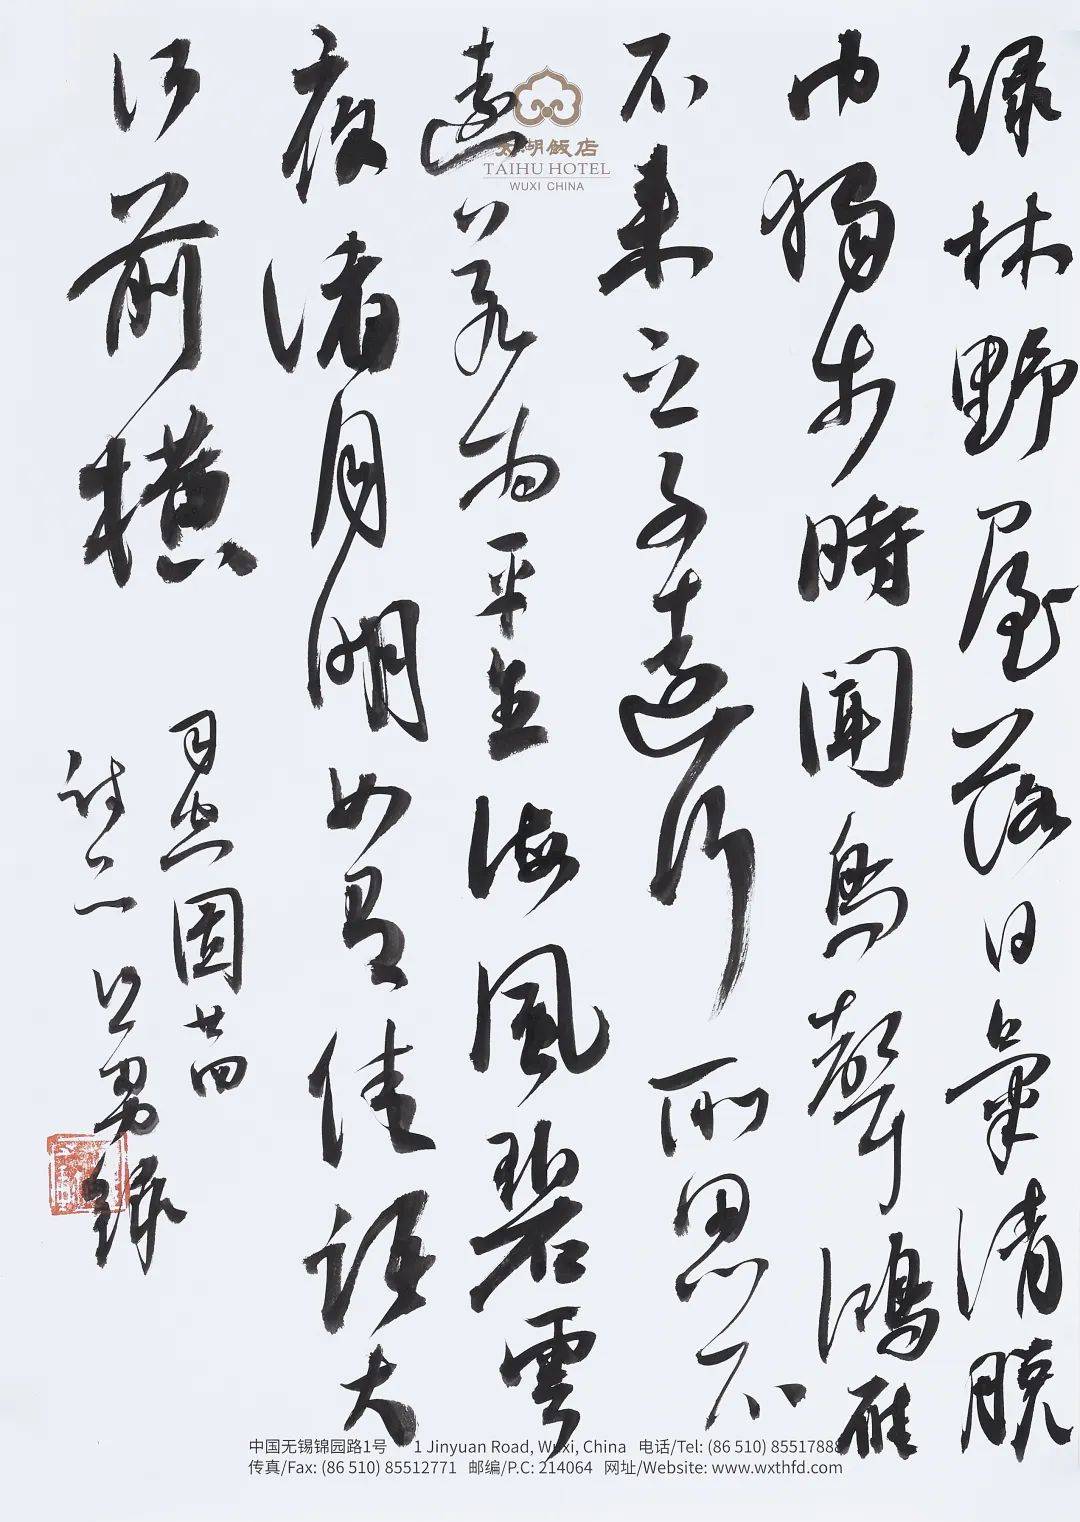 太湖飯店
TAIHU HOTEL
WUXI CHINA
绿林野屋落日氣清脱
巾獨步時聞鳥聲鴻雁
不来之子遠行所思不
遠若为平生海風碧雲
夜渚月明如有佳語大
河前橫
司空圖廿四
詩
録
中国无锡锦园路1号 1 Jinyuan Road, Wuxi, China 电话/Tel: (86 510) 85517888
传真/Fax: (86 510) 85512771 邮编/P.C: 214064 网址/Website: www.wxthfd.com